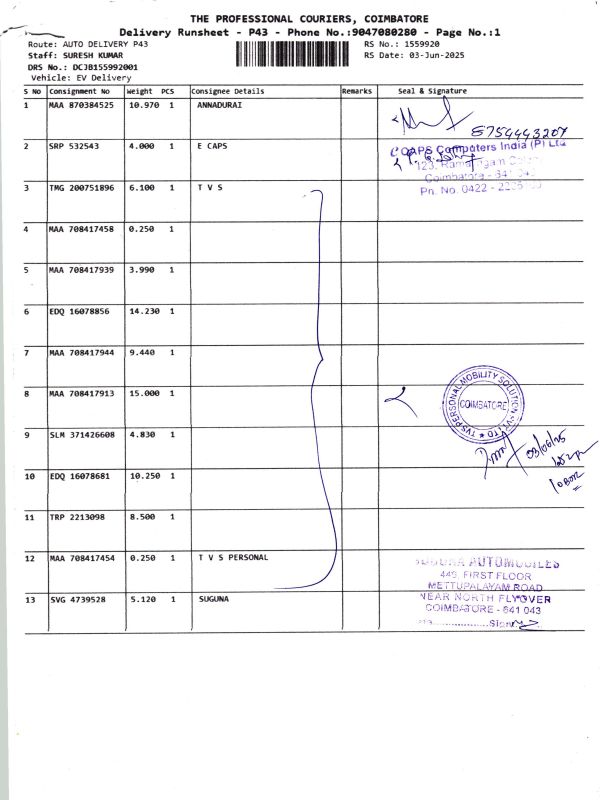 THE PROFESSIONAL COURIERS, COIMBATORE
Delivery Runsheet - P43 - Phone No.:9047080280 - Page No.:1
Route: AUTO DELIVERY P43
RS No.: 1559920
Staff: SURESH KUMAR
RS Date: 03-Jun-2025
DRS No.: DCJB155992001
Vehicle: EV Delivery
S No Consignment No Weight PCS Consignee Details Remarks Seal & Signature
1 MAA 870384525 10.970 1 ANNADURAI
8754443207
2 SRP 532543 4.000 1 E CAPS
CAPS Computers India (P) Ltd
123, Ramalingam
Coimbatore - 641 043
Pn. No. 0422 -
3 TMG 200751896 6.100 1 T V S
4 MAA 708417458 0.250 1
5 MAA 708417939 3.990 1
6 EDQ 16078856 14.230 1
7 MAA 708417944 9.440 1
8 MAA 708417913 15.000 1
TVS PERSONAL MOBILITY SOLUTION PVT LTD
COIMBATORE
9 SLM 371426608 4.830 1
03/06/25
10 EDQ 16078681 10.250 1
11 TRP 2213098 8.500 1
12 MAA 708417454 0.250 1 T V S PERSONAL
SUGUNA AUTOMOBILES
449, FIRST FLOOR
METTUPALAYAM ROAD
13 SVG 4739528 5.120 1 SUGUNA
NEAR NORTH FLYOVER
COIMBATORE - 641 043